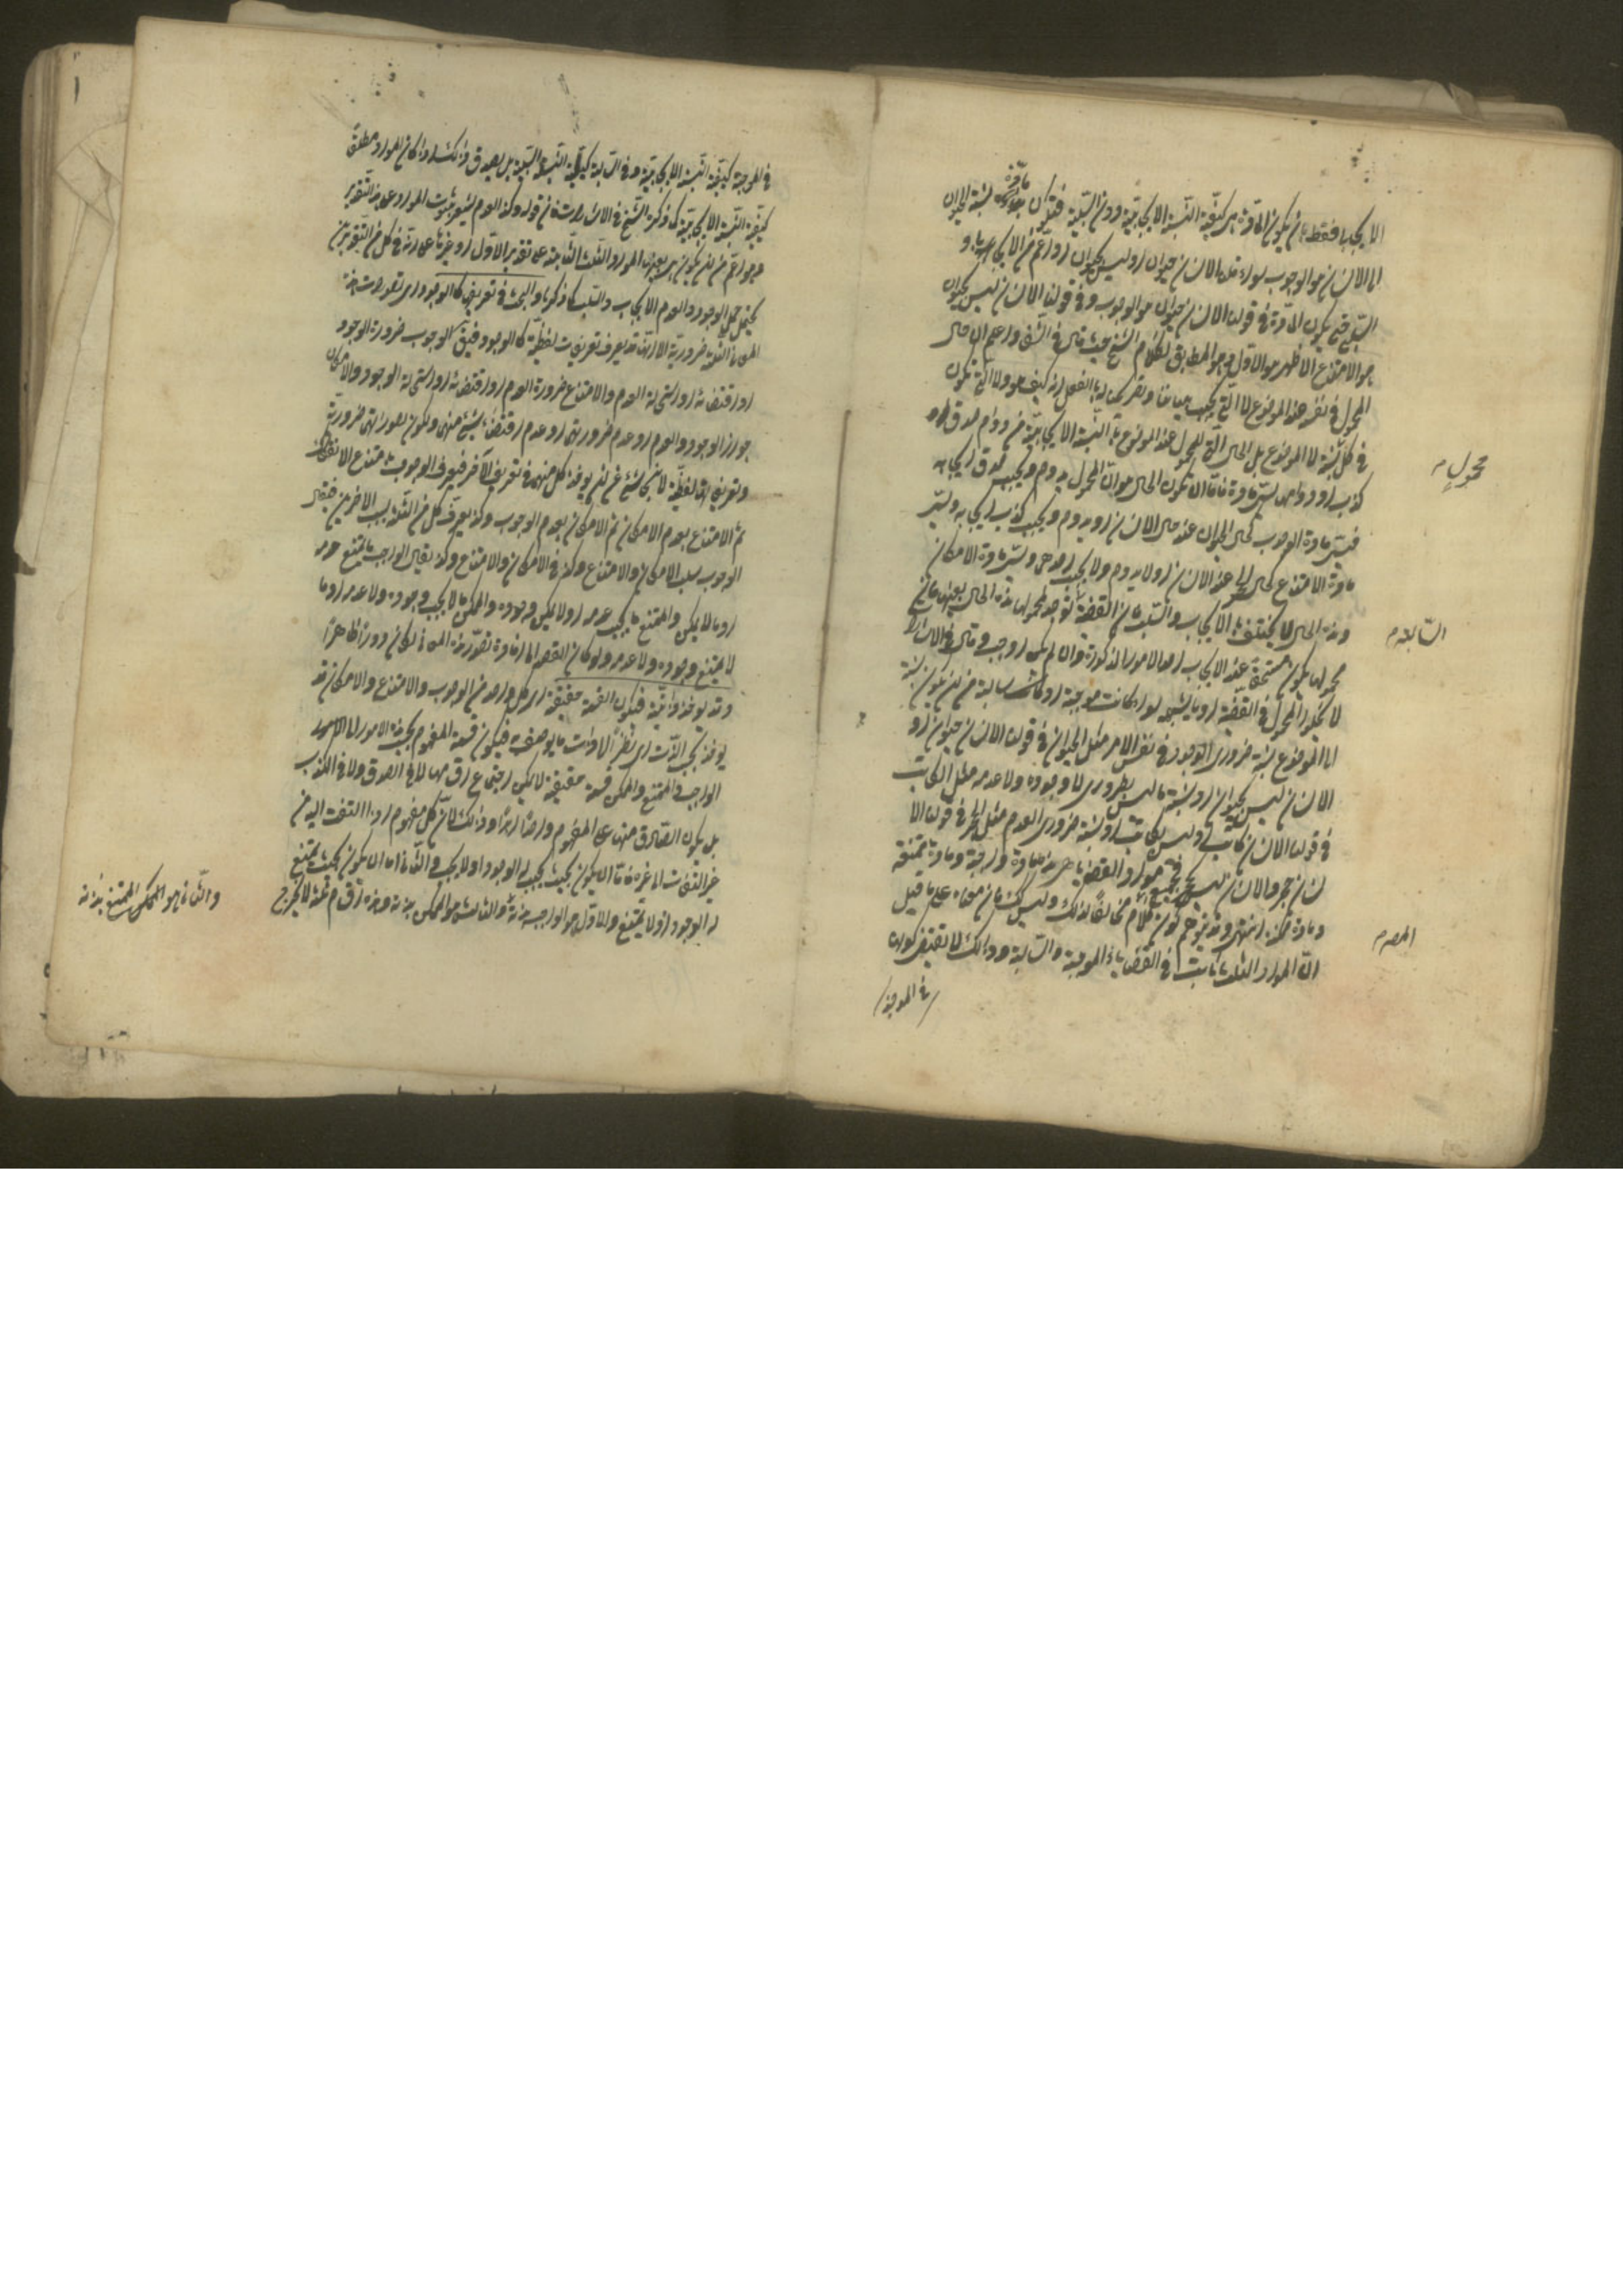 الايجاب فقط بان يكون المادة هي كيفية النسبة الايجابية دون السلبية فيكون مادة نسبة الحيوان
الى الانسان هو الوجوب سواء قلنا الانسان حيوان او ليس بحيوان او اعم من الايجاب و
السلب حتى يكون المادة في قولنا الانسان حيوان هو الوجوب وفي قولنا الانسان ليس بحيوان
هو الامتناع الاظهر هو الاول وهو المطابق لكلام الشيخ حيث قال في الشفا واعلم ان حال
المحمول في نفسه عند الموضوع لا التي بحسب بياننا وتصريحنا به بالفعل انه كيف هو ولا التي تكون
في كل نسبة الى الموضوع بل الحال التي للمحمول عند الموضوع بالنسبة الايجابية من دوام صدق او
كذب او لا دوامهما يسمى مادة فاما ان تكون الحال هو ان المحمول يدوم ويجب صدق ايجابه
محمول م
فيسمى مادة الوجوب كحال الحيوان عند حال الانسان او يدوم ويجب كذب ايجابه ويسمى
مادة الامتناع كحال الحجر عند الانسان او لا يدوم ولا يجب احدهما ويسمى مادة الامكان
وهذه الحال لا يختلف بالايجاب والسلب فان القضية السالبة توجد لمحمولها هذه الحال بعينها فان
السالبة م
محمولها يكون مستحقا عند الايجاب احد الامور المذكورة وان لم يكن اوجب وقال في الاشارات
لا يخلو المحمول في القضية او ما يشبهه سواء كانت موجبة او كانت سالبة من ان يكون نسبته
الى الموضوع نسبة ضروري الوجود في نفس الامر مثل الحيوان في قولنا الانسان حيوان او
الانسان ليس بحيوان او نسبة ما ليس بضروري لا وجوده ولا عدمه مثل الكاتب
في قولنا الانسان كاتب او ليس بكاتب او نسبة ضروري العدم مثل الحجر في قولنا الا
نسان حجر والانسان ليس بحجر فجميع مواد القضايا هي هذه مادة واجبة ومادة ممتنعة
ومادة ممكنة انتهى وقد يتوهم كون كلام المصنف مخالفا لذلك وليس كذلك فان معناه على ما قيل
المص م
ان المواد الثلث ثابتة في القضايا الموجبة والسالبة وذلك لا يقتضي كونها
في الموجبة
في الموجبة كيفية النسبة الايجابية وفي السالبة كيفية النسبة السلبية بل يصدق ذلك اذا كان المواد مطلقا
كيفية النسبة الايجابية كما ذكره الشيخ في الاشارات فان قوله وكذا العدم يشعر بثبوت المواد على هذا التقدير
وهو اعم من ان يكون هي بعينها المواد الثلث الثابتة على تقدير الاول او غيرها على انه في كل من التقديرين
يحتمل حمل الوجود والعدم الايجاب والسلب كما ذكرنا والبحث في تعريفها كالوجود اي تصورات هذه
المعاني الثلثة ضرورية الا انه قد يعرف تعريفات لفظية كالوجود فيقال الوجوب ضرورة الوجود
او اقتضاؤه او استحالة العدم والامتناع ضرورة العدم او اقتضاؤه او استحالة الوجود والامكان
جواز الوجود والعدم او عدم ضرورتهما او عدم اقتضاء شيء منهما ولكون تصوراتها ضرورية
وتعريفاتها لفظية لا يتحاشى عن ان يؤخذ كل منها في تعريف الآخر فيعرف الوجوب بامتناع الانفكاك
ثم الامتناع بعدم الامكان ثم الامكان بعدم الوجوب وقد يعرف كل من الثلثة بسلب الاخرين فيقال
الوجوب سلب الامكان والامتناع وكذا في الامكان والامتناع وكذا يقال الواجب ما يمتنع عدمه
او ما لا يمكن والممتنع ما يجب عدمه او لا يمكن وجوده والممكن ما لا يجب وجوده ولا عدمه او ما
لا يمتنع وجوده ولا عدمه ولو كان القصد الى افادة تصور هذه المعاني لكان دورا ظاهرا
وقد يؤخذ ذاتية فيكون القسمة حقيقية اي كل واحد من الوجوب والامتناع والامكان قد
يؤخذ بحسب الذات اي بنظر الى ذات ما يوصف به فيكون قسمة المفهوم بحسب هذه الامور الى
الواجب والممتنع والممكن قسمة حقيقية لا يمكن اجتماع اقسامها لا في الصدق ولا في الكذب
بل يكون الصادق منها على المفهوم واحدا ابدا وذلك لان كل مفهوم اذا التفت اليه من
غير التفات الى غيره فاما ان يكون بحيث يجب له الوجود او لا يجب والثاني اما ان يكون بحيث يمتنع
له الوجود او لا يمتنع والاول هو الواجب بذاته والثالث هو الممكن بذاته وهذه اقسام ثلثة لا يخرج
والثاني هو الممكن الممتنع بذاته